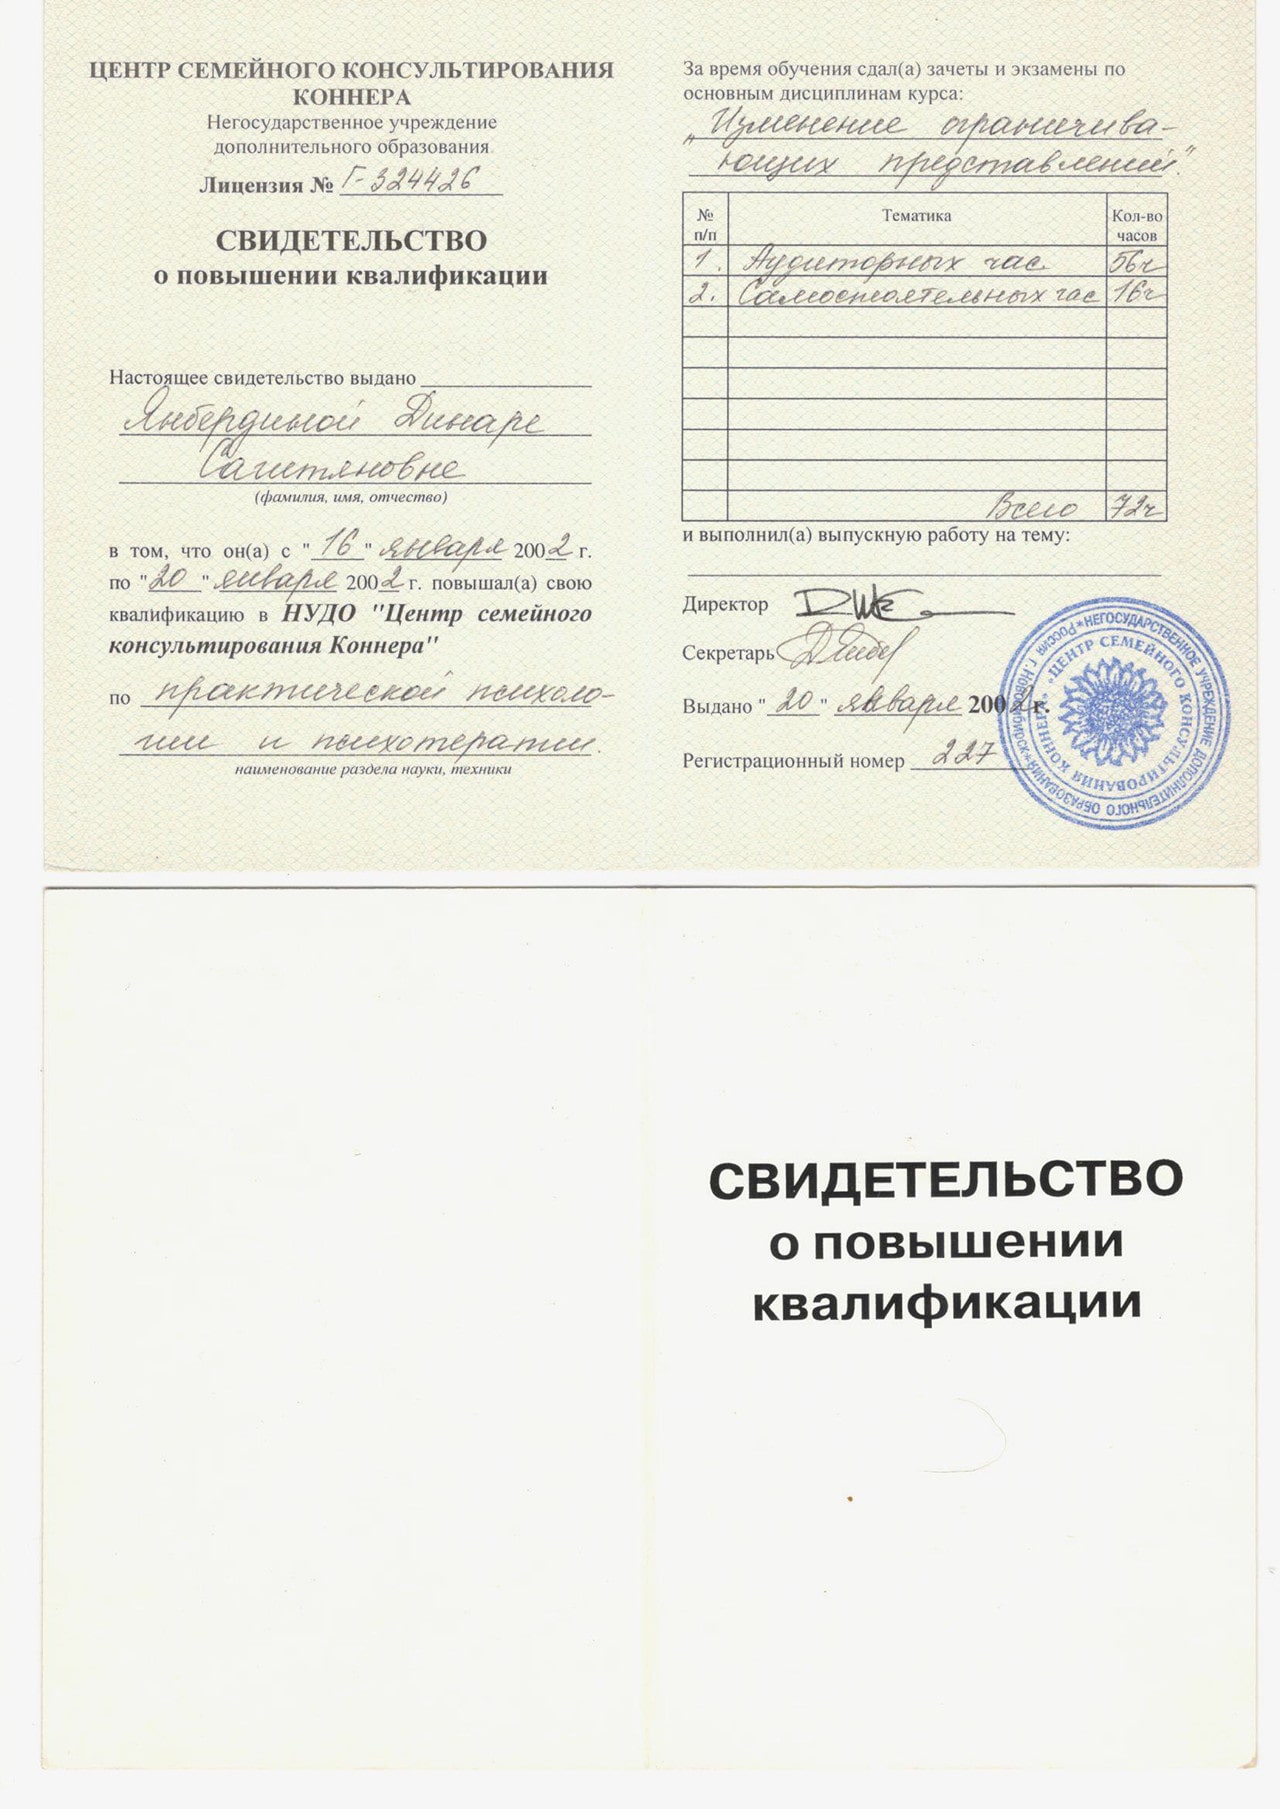 ЦЕНТР СЕМЕЙНОГО КОНСУЛЬТИРОВАНИЯ
КОННЕРА
Негосударственное учреждение
дополнительного образования
Лицензия № Г-324426
СВИДЕТЕЛЬСТВО
о повышении квалификации
Настоящее свидетельство выдано
Янбердиной Динаре
Сагитяновне
(фамилия, имя, отчество)
в том, что он(а) с "16" января 2002 г.
по "20" января 2002 г. повышал(а) свою
квалификацию в НУДО "Центр семейного
консультирования Коннера"
по практической психоло-
гии и психотерапии.
наименование раздела науки, техники
За время обучения сдал(а) зачеты и экзамены по
основным дисциплинам курса:
„Изменение ограничива-
ющих представлений".
№ п/п Тематика Кол-во часов
1. Аудиторных час. 56ч
2. Самостоятельных час 16ч
Всего 72ч
и выполнил(а) выпускную работу на тему:
Директор
Секретарь
Выдано "20" января 2002 г.
Регистрационный номер 227
РОССИЯ г. НОВОСИБИРСК * НЕГОСУДАРСТВЕННОЕ УЧРЕЖДЕНИЕ ДОПОЛНИТЕЛЬНОГО ОБРАЗОВАНИЯ *
"ЦЕНТР СЕМЕЙНОГО КОНСУЛЬТИРОВАНИЯ КОННЕРА"
СВИДЕТЕЛЬСТВО
о повышении
квалификации